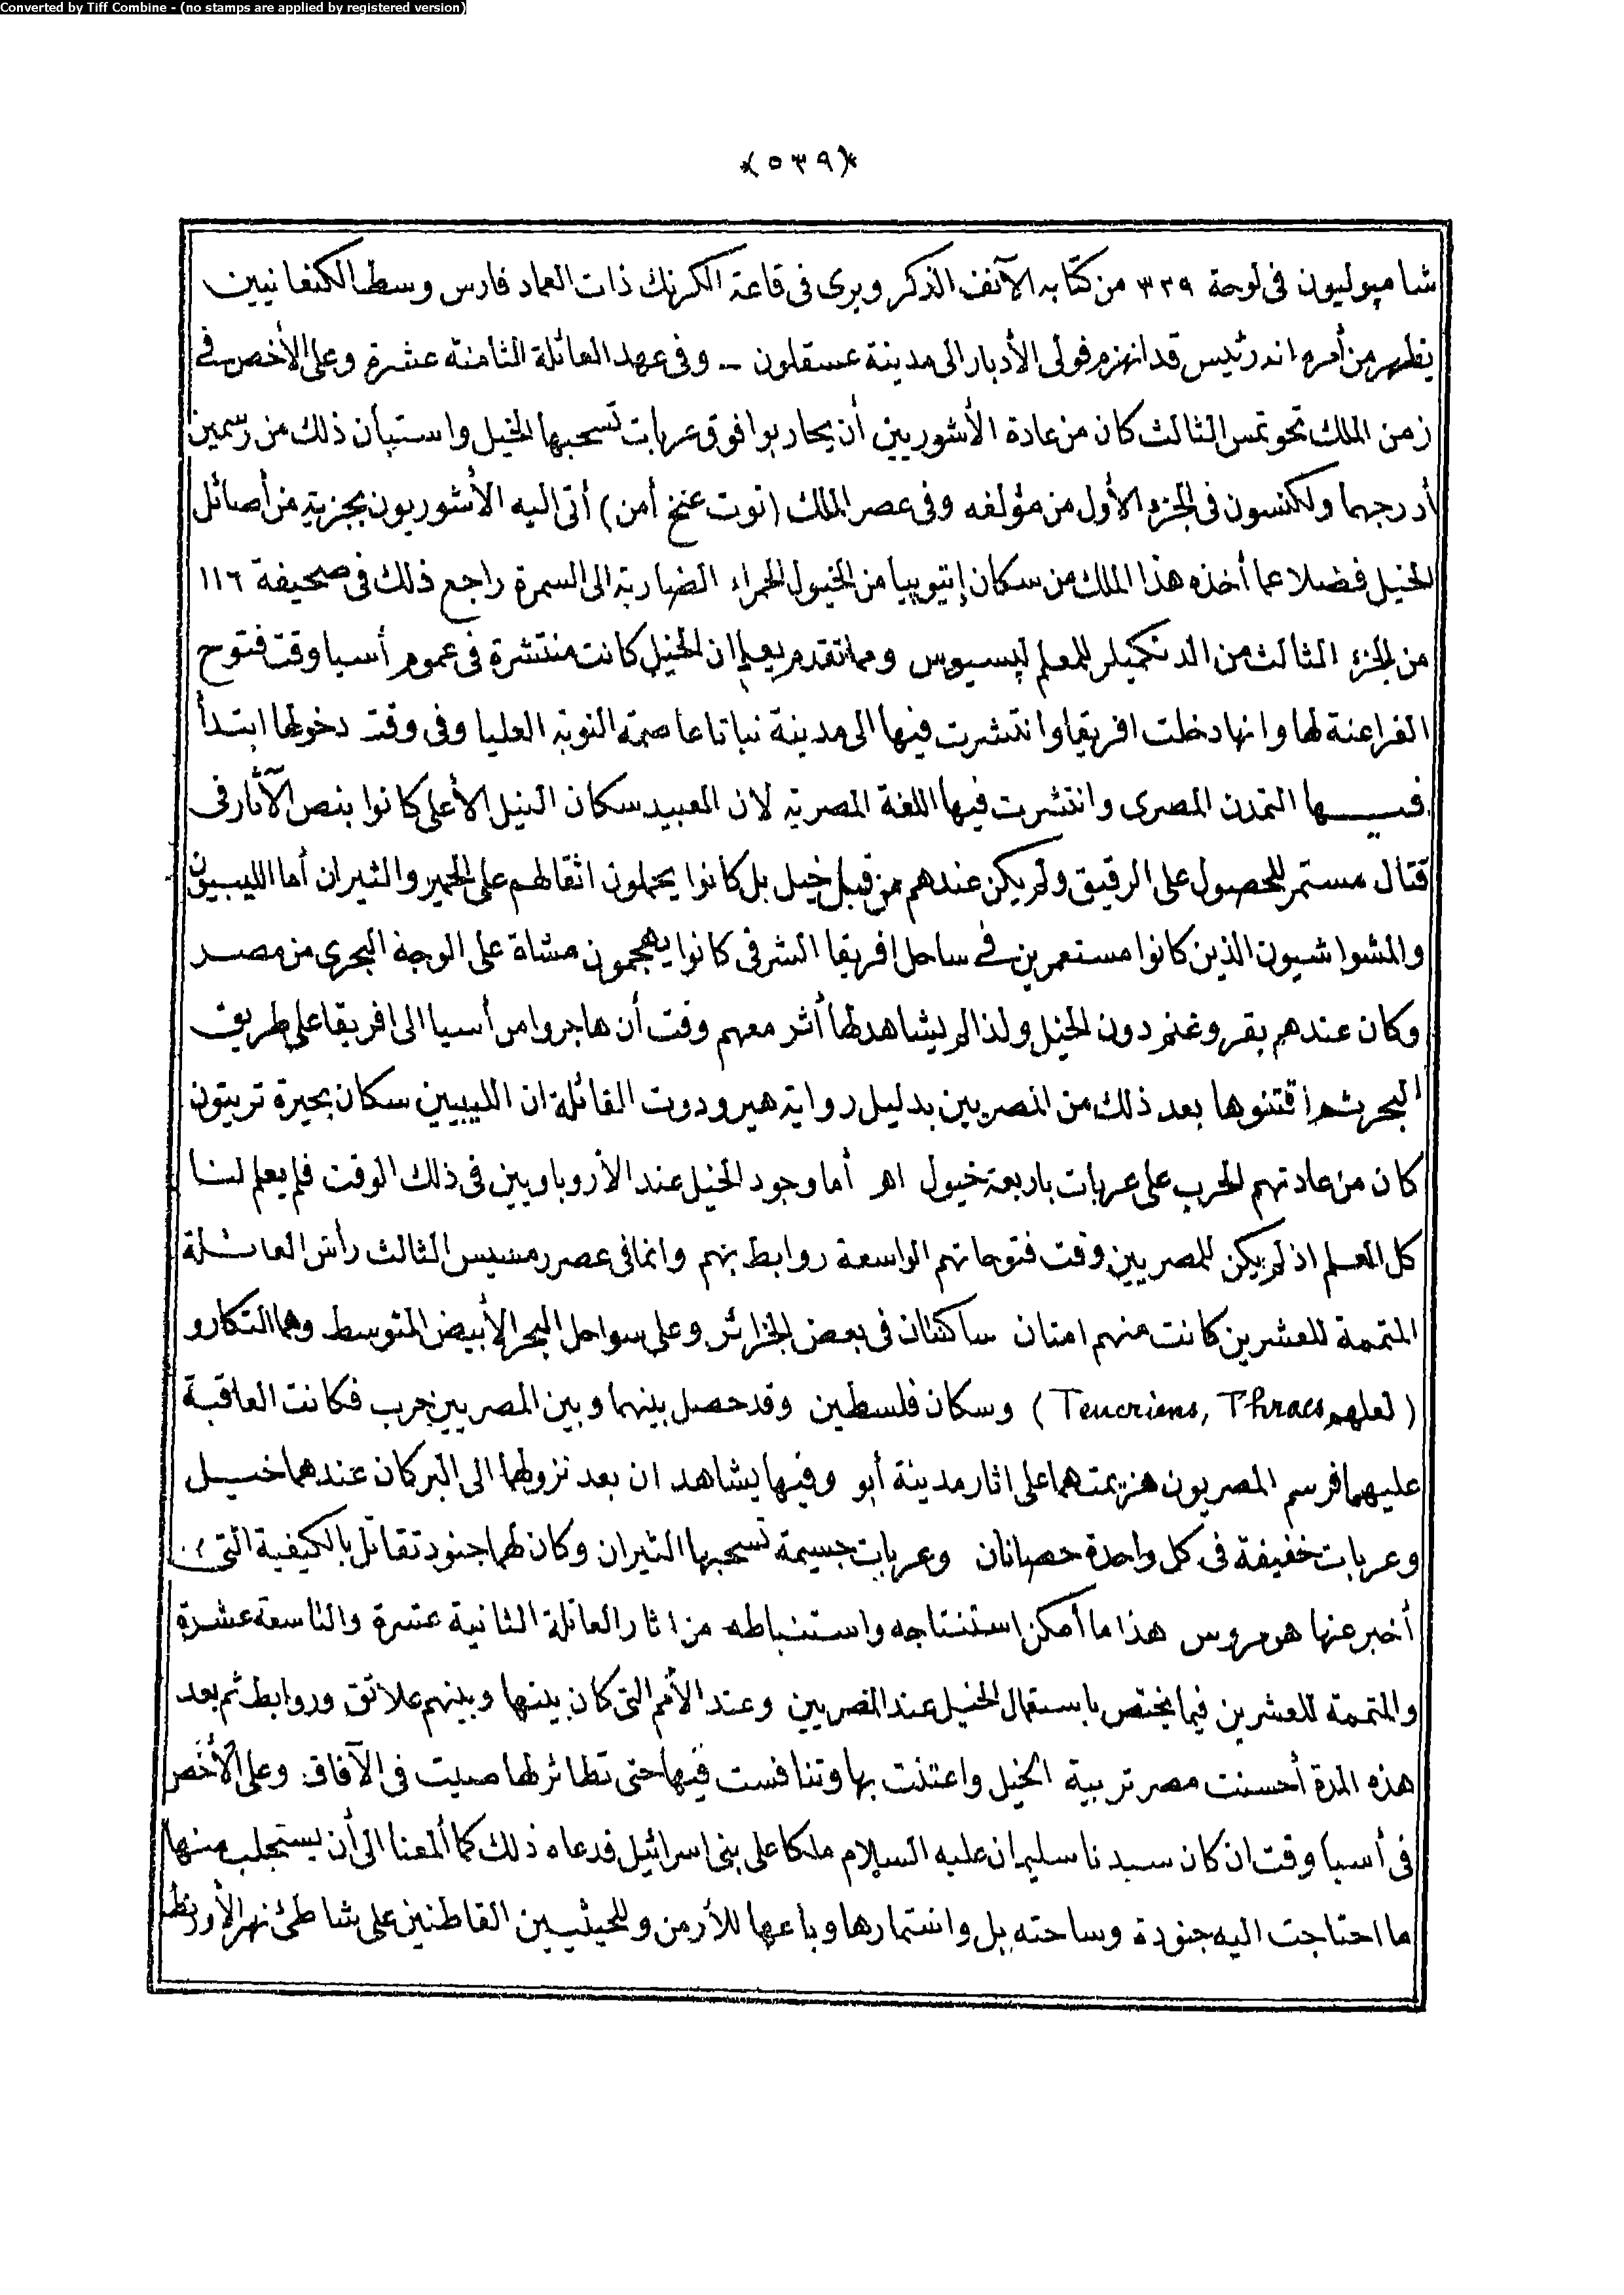 Converted by Tiff Combine - (no stamps are applied by registered version)
﴿٥٣٩﴾
شامپوليون فى لوحة ٣٣٩ من كتابه الآنف الذكر ويرى فى قاعة الكرنك ذات العماد فارس وسط الكنعانيين
يظهر من أمره انه رئيس قد انهزم فولى الأدبار الى مدينة عسقلون – وفى عهد العائلة الثامنة عشرة وعلى الأخص فى
زمن الملك تحوتمس الثالث كان من عادة الأشوريين أن يحاربوا فوق عربات تسحبها الخيل واستبان ذلك من رسمين
أدرجهما ولكنسون فى الجزء الأول من مؤلفه وفى عصر الملك (توت عنخ أمن) أتى اليه الأشوريون بجزية من أصائل
الخيل فضلا عما أخذه هذا الملك من سكان إتيوپيا من الخيول الحمراء الضاربة الى السمرة راجع ذلك فى صحيفة ١١٦
من الجزء الثالث من الدنكميلر للمعلم لپسيوس ومما تقدم يعلم ان الخيل كانت منتشرة فى عموم أسيا وقت فتوح
الفراعنة لها وانها دخلت افريقا وانتشرت فيها الى مدينة نباتا عاصمة النوبة العليا وفى وقت دخولها ابتدأ
فيها التمدن المصرى وانتشرت فيها اللغة المصرية لان العبيد سكان النيل الأعلى كانوا بنص الآثار فى
قتال مستمر للحصول على الرقيق ولم يكن عندهم من قبل خيل بل كانوا يحملون اثقالهم على الحمير والثيران أما الليبيون
والمشواشيون الذين كانوا مستعمرين فى ساحل افريقا الشرقى كانوا يهجمون مشاة على الوجة البحرى من مصر
وكان عندهم بقر وغنم دون الخيل ولذا لم يشاهد لها أثر معهم وقت أن هاجروا من أسيا الى افريقا على طريق
البحر ثم اقتنوها بعد ذلك من المصريين بدليل رواية هيرودوت القائلة ان الليبيين سكان بحيرة تريتون
كان من عادتهم الحرب على عربات باربعة خيول اهـ أما وجود الخيل عند الأروباويين فى ذلك الوقت فلم يعلم لنا
كل العلم اذ لم يكن للمصريين وقت فتوحاتهم الواسعة روابط بهم وانما فى عصر رمسيس الثالث رأس العائلة
المتممة للعشرين كانت منهم امتان ساكنتان فى بعض الجزائر وعلى سواحل البحر الأبيض المتوسط وهما التكارو
(لعلهم Teucriens, Thraces) وسكان فلسطين وقد حصل بينهما وبين المصريين حرب فكانت العاقبة
عليهما فرسم المصريون هزيمتهما على اثار مدينة أبو وفيها يشاهد ان بعد نزولهما الى البر كان عندهما خيل
وعربات خفيفة فى كل واحدة حصانان وعربات جسيمة تسحبها الثيران وكان لهما جنود تقاتل بالكيفية التى
أخبر عنها هوميروس هذا ما أمكن استنتاجه واستنباطه من اثار العائلة الثانية عشرة والتاسعة عشرة
والمتممة للعشرين فيما يختص باستعمال الخيل عند المصريين وعند الأمم التى كان بينها وبينهم علائق وروابط ثم بعد
هذه المدة أحسنت مصر تربية الخيل واعتنت بها وتنافست فيها حتى تطائر لها صيت فى الآفاق وعلى الأخص
فى أسيا وقت ان كان سيدنا سليمان عليه السلام ملكا على بنى اسرائيل فدعاه ذلك كما ألمعنا الى أن يستجلب منها
ما احتاجت اليه جنودة وساحته بل واستمارها وباعها للأرمن وللحيثيين القاطنين على شاطئ نهر